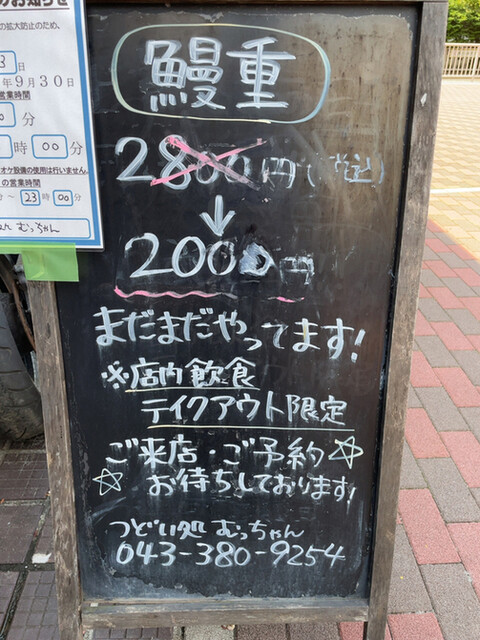 のお知らせ
の拡大防止のため、
3日
年9月30日
営業時間
0分
時00分
オケ設備の使用は行いません
の営業時間
分～23時00分
むっちゃん
鰻重
2800円(税込)
↓
2000円
まだまだやってます!
※店内飲食
テイクアウト限定
ご来店・ご予約☆
☆お待ちしております!
つどい処むっちゃん
043-380-9254